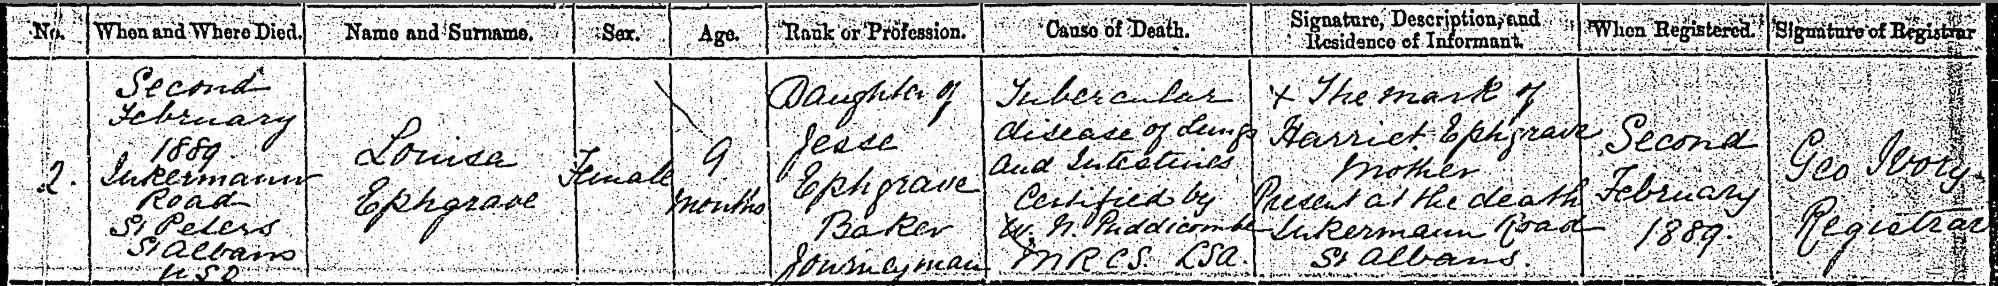 No. When and Where Died. Name and Surname. Sex. Age. Rank or Profession. Cause of Death. Signature, Description, and Residence of Informant. When Registered. Signature of Registrar
2.
Second
February
1889
Inkermann
Road
St Peters
St Albans
U S D
Louisa
Ephgrave
Female
9
months
Daughter of
Jesse
Ephgrave
Baker
Journeyman
Tubercular
disease of Lungs
and Intestines
Certified by
W. N. Puddicombe
MRCS LSA.
X The mark of
Harriet Ephgrave
Mother
Present at the death
Inkermann Road
St Albans.
Second
February
1889.
Geo Ivory
Registrar